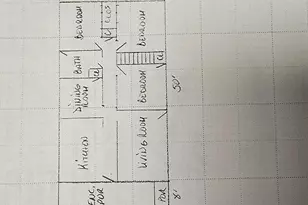 BEDROOM
CLOS
BEDROOM
BATH
DINING
ROOM
BEDROOM
KITCHEN
LIVING ROOM
50'
ENC.
POR
POR